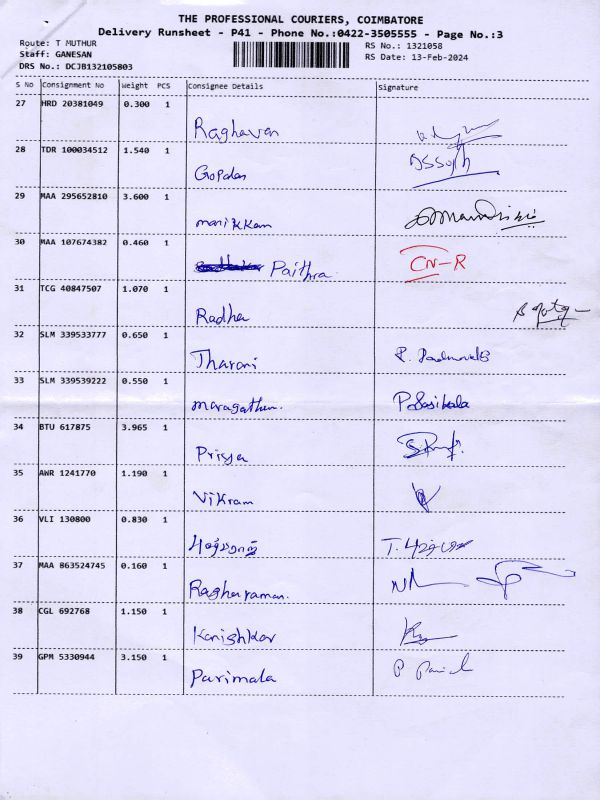 THE PROFESSIONAL COURIERS, COIMBATORE
Delivery Runsheet - P41 - Phone No.:0422-3505555 - Page No.:3
Route: T MUTHUR
RS No.: 1321058
Staff: GANESAN
RS Date: 13-Feb-2024
DRS No.: DCJB132105803
S No Consignment No Weight PCS Consignee Details Signature
27 HRD 20381049 0.300 1
Raghavan
28 TDR 100034512 1.540 1
Gopalan
29 MAA 295652810 3.600 1
manikkam
30 MAA 107674382 0.460 1
Paithra. CN-R
31 TCG 40847507 1.070 1
Radha
32 SLM 339533777 0.650 1
Tharani
33 SLM 339539222 0.550 1
maragatham. P. Sasikala
34 BTU 617875 3.965 1
Priya
35 AWR 1241770 1.190 1
Vikram
36 VLI 130800 0.830 1
37 MAA 863524745 0.160 1
Ragharaman.
38 CGL 692768 1.150 1
Kanishkar
39 GPM 5330944 3.150 1
Parimala